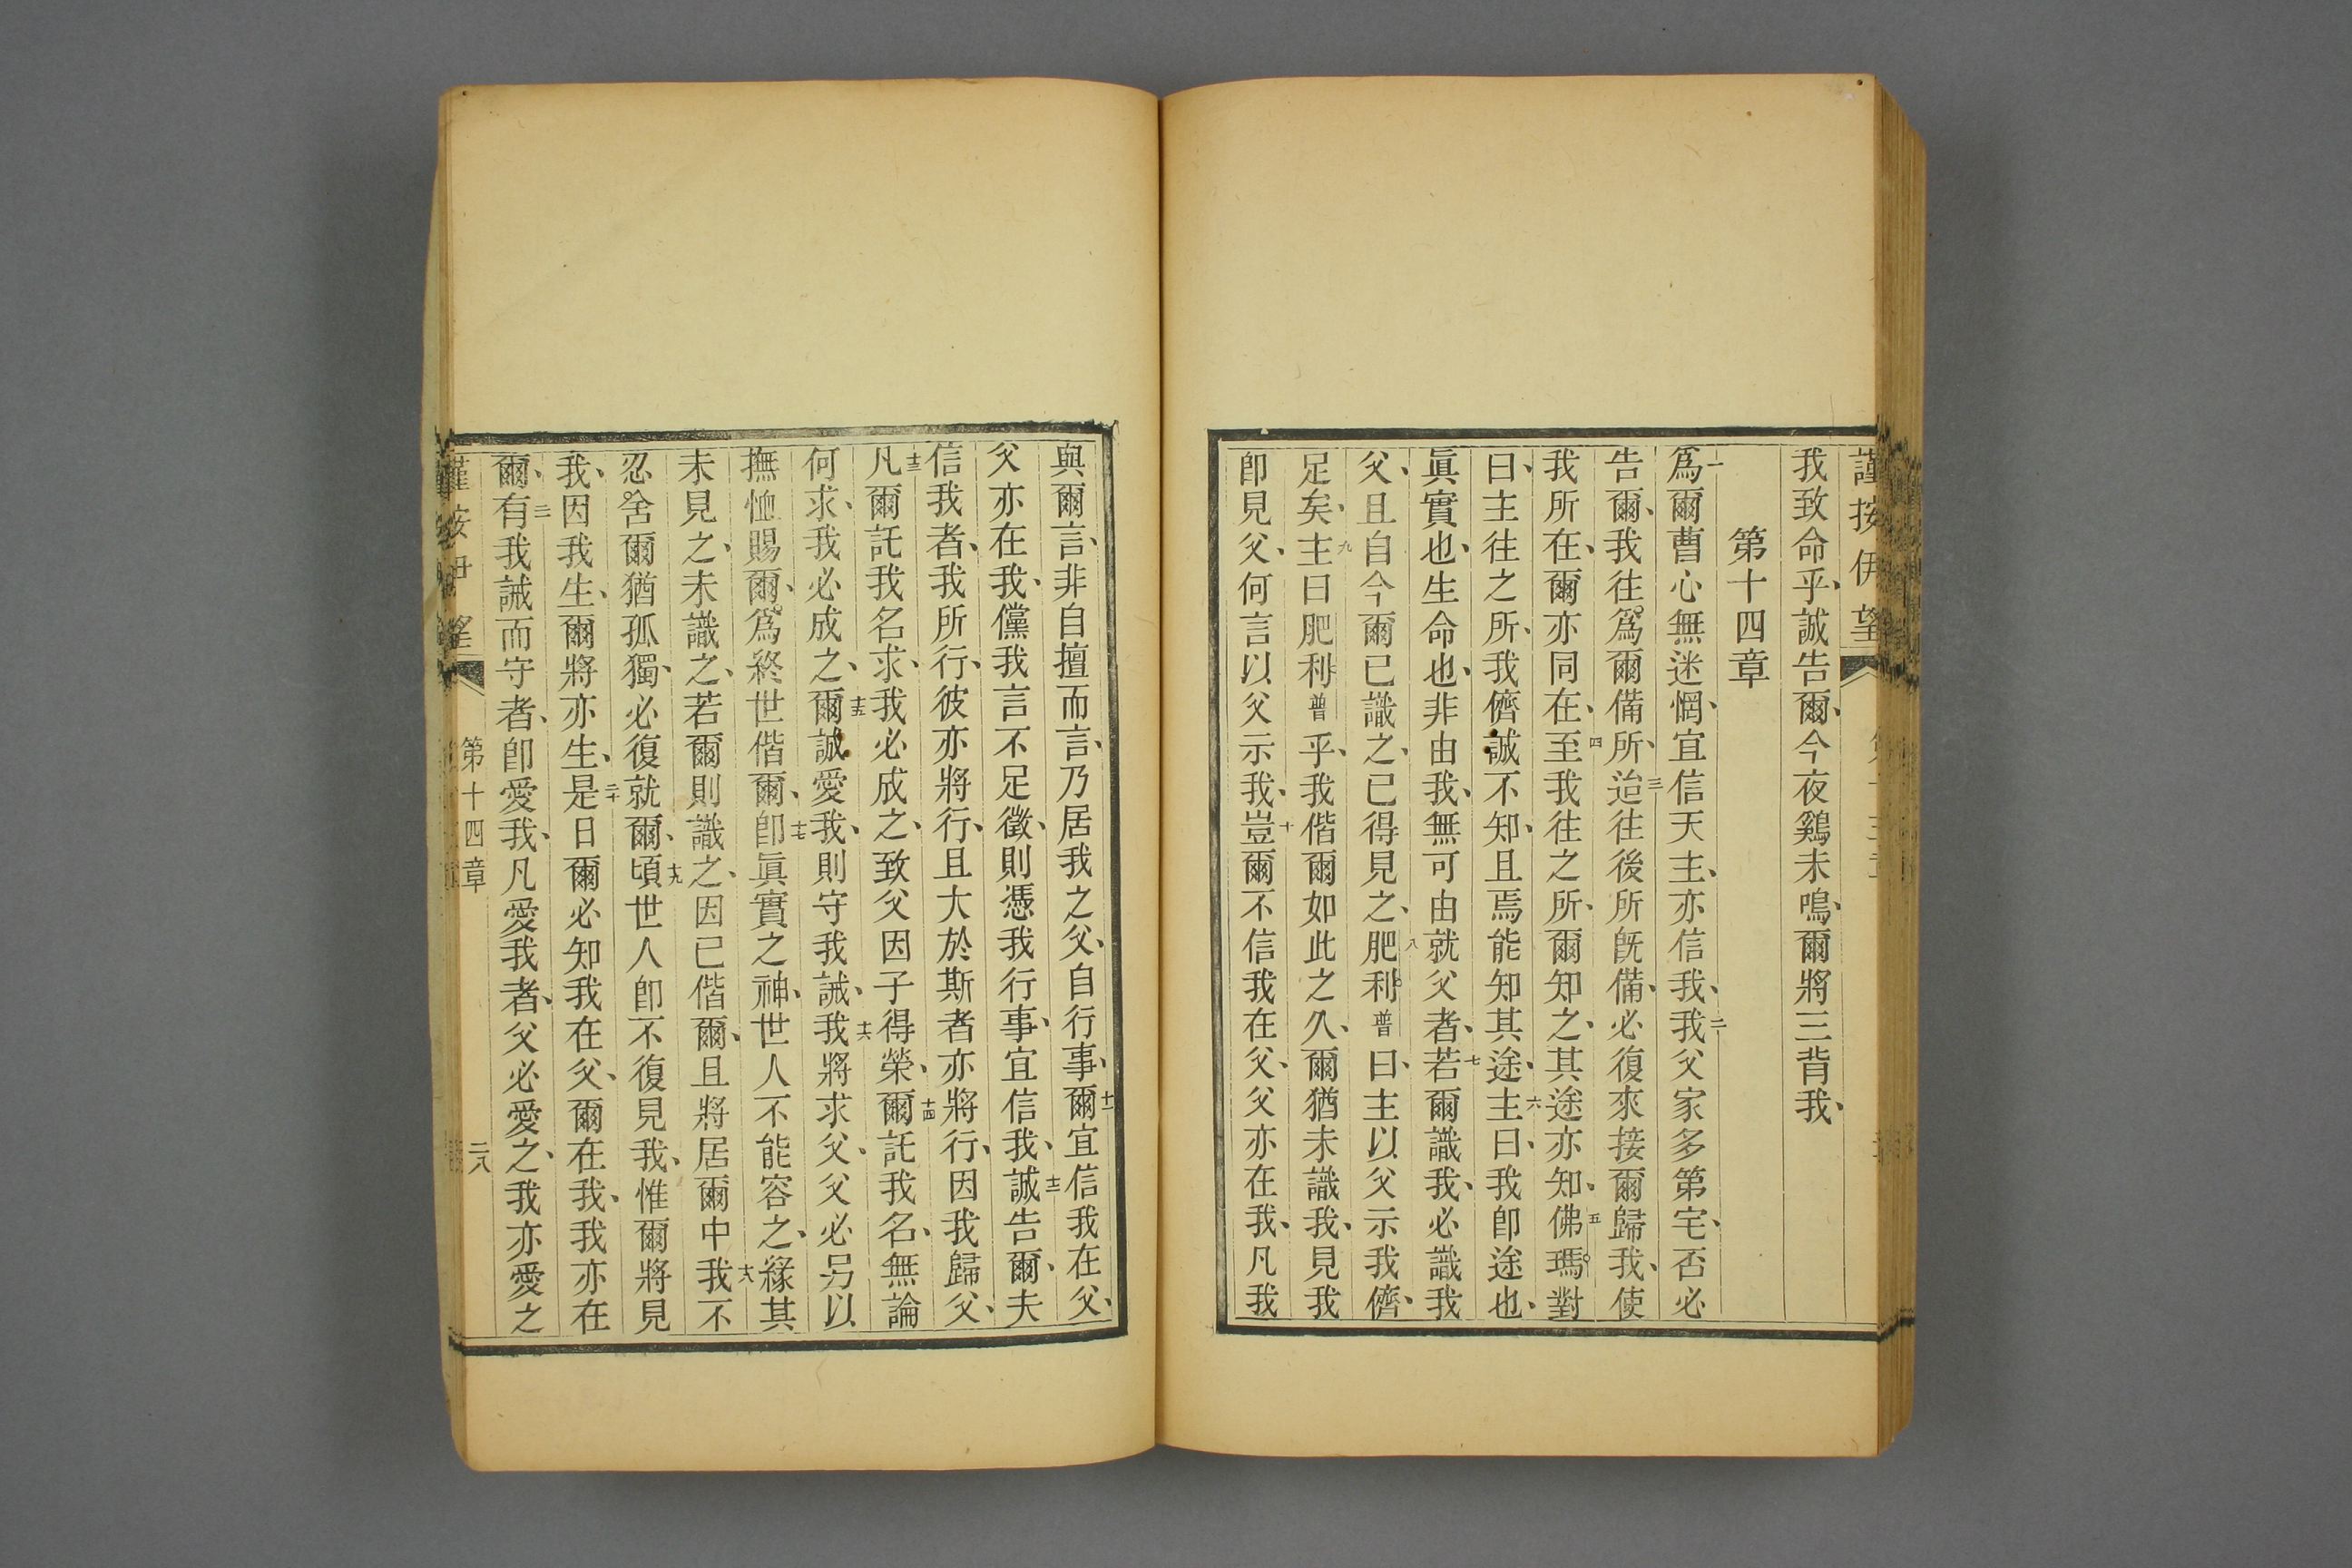 謹按伊望
我致命乎、誠告爾、今夜鷄未鳴、爾將三背我、
第十四章
一爲爾曹心無迷惘、宜信天主、亦信我、二我父家多第宅、否必
告爾、我往爲爾備所、三迨往後所旣備、必復來接爾歸我、使
我所在、爾亦同在、四至我往之所、爾知之、其途亦知、五佛瑪對
曰、主往之所、我儕誠不知、且焉能知其途、六主曰、我卽途也、
眞實也、生命也、非由我、無可由就父者、七若爾識我、必識我
父、且自今爾已識之、已得見之、八肥利普曰、主以父示我儕、
足矣、九主曰肥利普乎、我偕爾如此之久、爾猶未識我、見我
卽見父、何言以父示我、十豈爾不信我在父、父亦在我、凡我
與爾言、非自擅而言、乃居我之父、自行事、十一爾宜信我在父、
父亦在我、儻我言不足徵、則憑我行事、宜信我、十二誠告爾、夫
信我者、我所行、彼亦將行、且大於斯者亦將行、因我歸父、
十三凡爾託我名求、我必成之、致父因子得榮、十四爾託我名、無論
何求、我必成之、十五爾誠愛我、則守我誡、十六我將求父、父必另以
撫恤賜爾、爲終世偕爾、十七卽眞實之神、世人不能容之、緣其
未見之、未識之、若爾則識之、因已偕爾、且將居爾中、十八我不
忍舍爾猶孤獨、必復就爾、十九頃世人卽不復見我、惟爾將見
我、因我生、爾將亦生、二十是日爾必知我在父、爾在我、我亦在
爾、二一有我誡而守者、卽愛我、凡愛我者、父必愛之、我亦愛之
謹按伊望
第十四章
二八